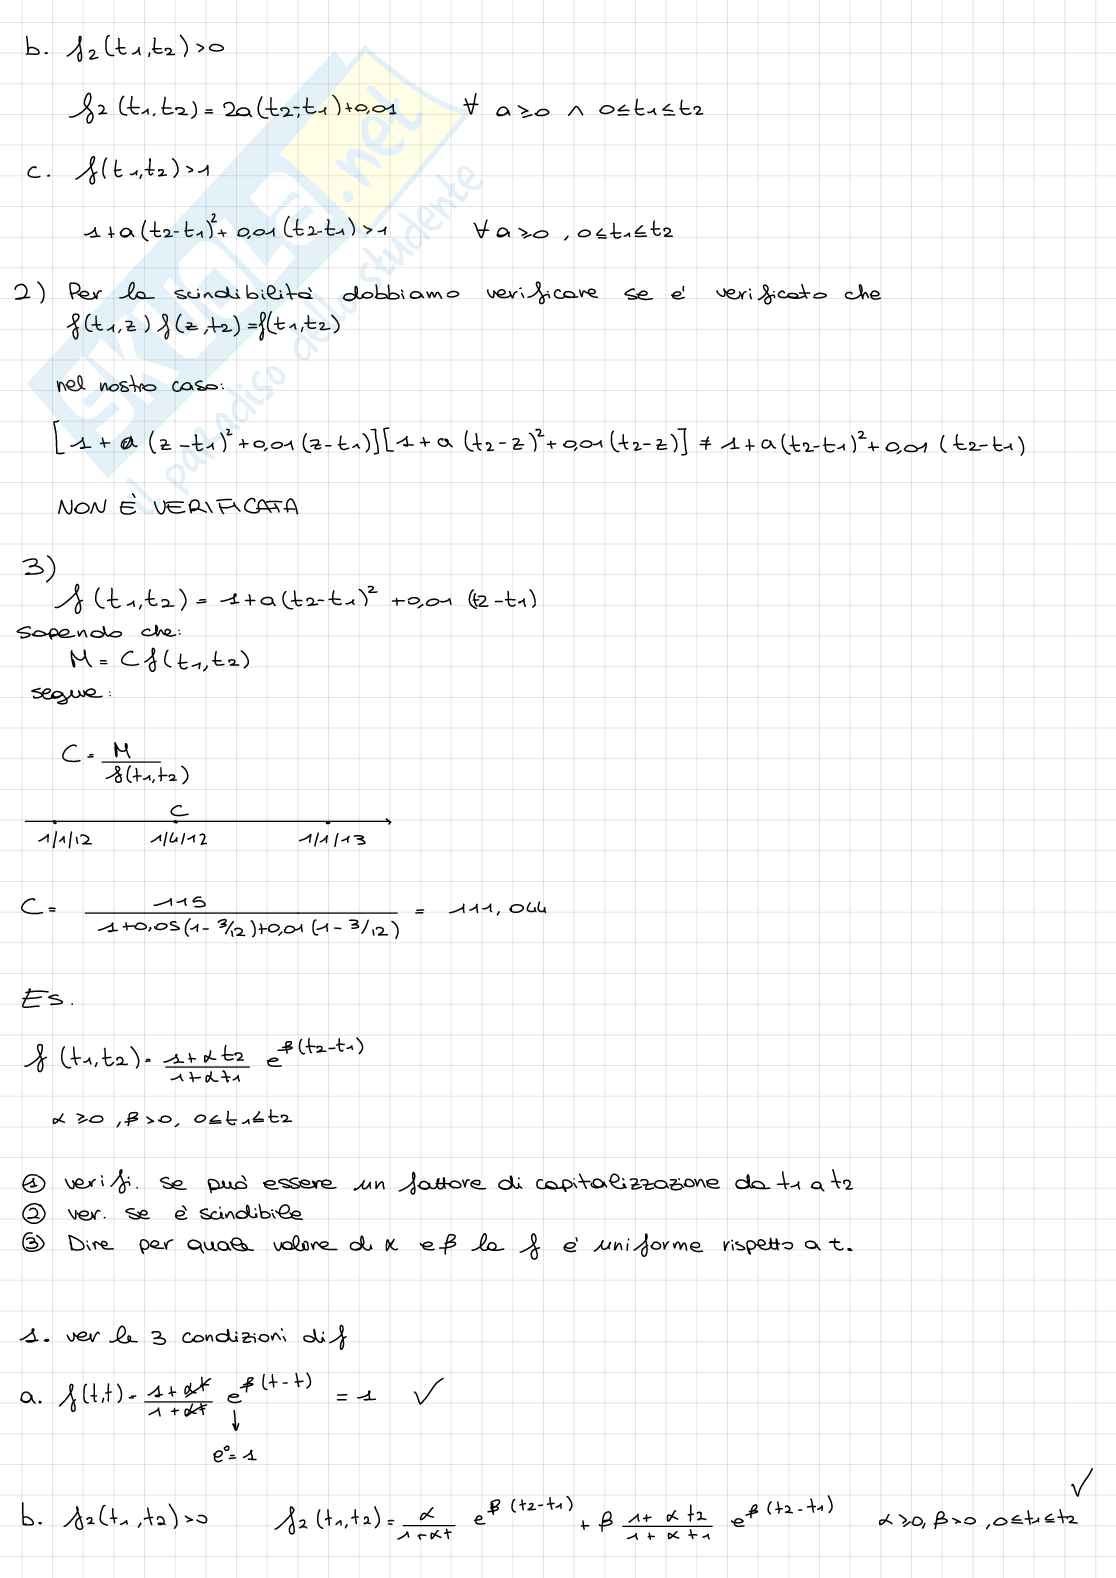 b. f2(t1,t2)>0
f2(t1,t2) = 2a(t2-t1)+0,01 ∀ a≥0 ∧ 0≤t1≤t2
c. f(t1,t2)>1
1+a(t2-t1)²+ 0,01(t2-t1)>1 ∀a≥0, 0≤t1≤t2
2) Per la scindibilità dobbiamo verificare se è verificato che
f(t1,z) f(z,t2)=f(t1,t2)
nel nostro caso:
[1+a(z-t1)²+0,01(z-t1)][1+a(t2-z)²+0,01(t2-z)] ≠ 1+a(t2-t1)²+0,01(t2-t1)
NON È VERIFICATA
3)
f(t1,t2) = 1+a(t2-t1)² +0,01 (t2-t1)
sapendo che:
M = C f(t1,t2)
segue:
C = M / f(t1,t2)
C
1/1/12 1/4/12 1/1/13
C = 115 / 1+0,05(1-3/12)+0,01(1-3/12) = 111,044
Es.
f(t1,t2) = 1+αt2 / 1+αt1 e^β(t2-t1)
α≥0, β>0, 0≤t1≤t2
① verifi. se può essere un fattore di capitalizzazione da t1 a t2
② ver. se è scindibile
③ Dire per quale valore di α e β la f è uniforme rispetto a t.
1. ver le 3 condizioni di f
a. f(t,t) = 1+αt / 1+αt e^β(t-t) = 1 ✓
↓
e⁰=1
✓
b. f2(t1,t2)>0 f2(t1,t2) = α / 1+αt e^β(t2-t1) + β 1+αt2 / 1+αt1 e^β(t2-t1) α≥0, β>0, 0≤t1≤t2
SKUOLA.net
il paradiso dello studente